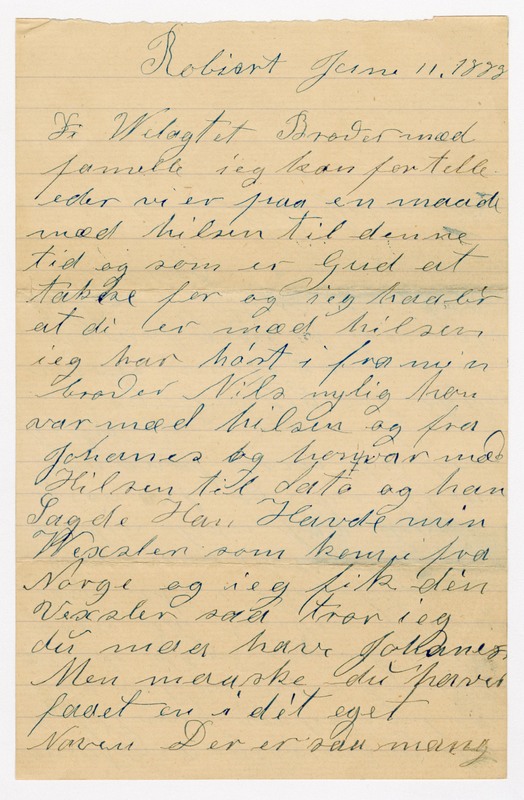 Robiert June 11, 1888
Di Welagtet Broder med
famelle ieg kan fortelle
eder vi er paa en maade
mæd hilsen til denne
tid og som er Gud at
takke for og ieg haaber
at di er mæd hilsen
ieg har hört i fra min
broder Nils nylig han
var mæd hilsen og fra
Johanes og han var mæd
Hilsen til Data og han
Sagde Han Havde min
Wexsler som kom i fra
Norge og ieg fik den
Vexsler saa tror ieg
du maa have Johanes
Men maaske du haver
faaet en i dét eget
Naven Der er saa mang